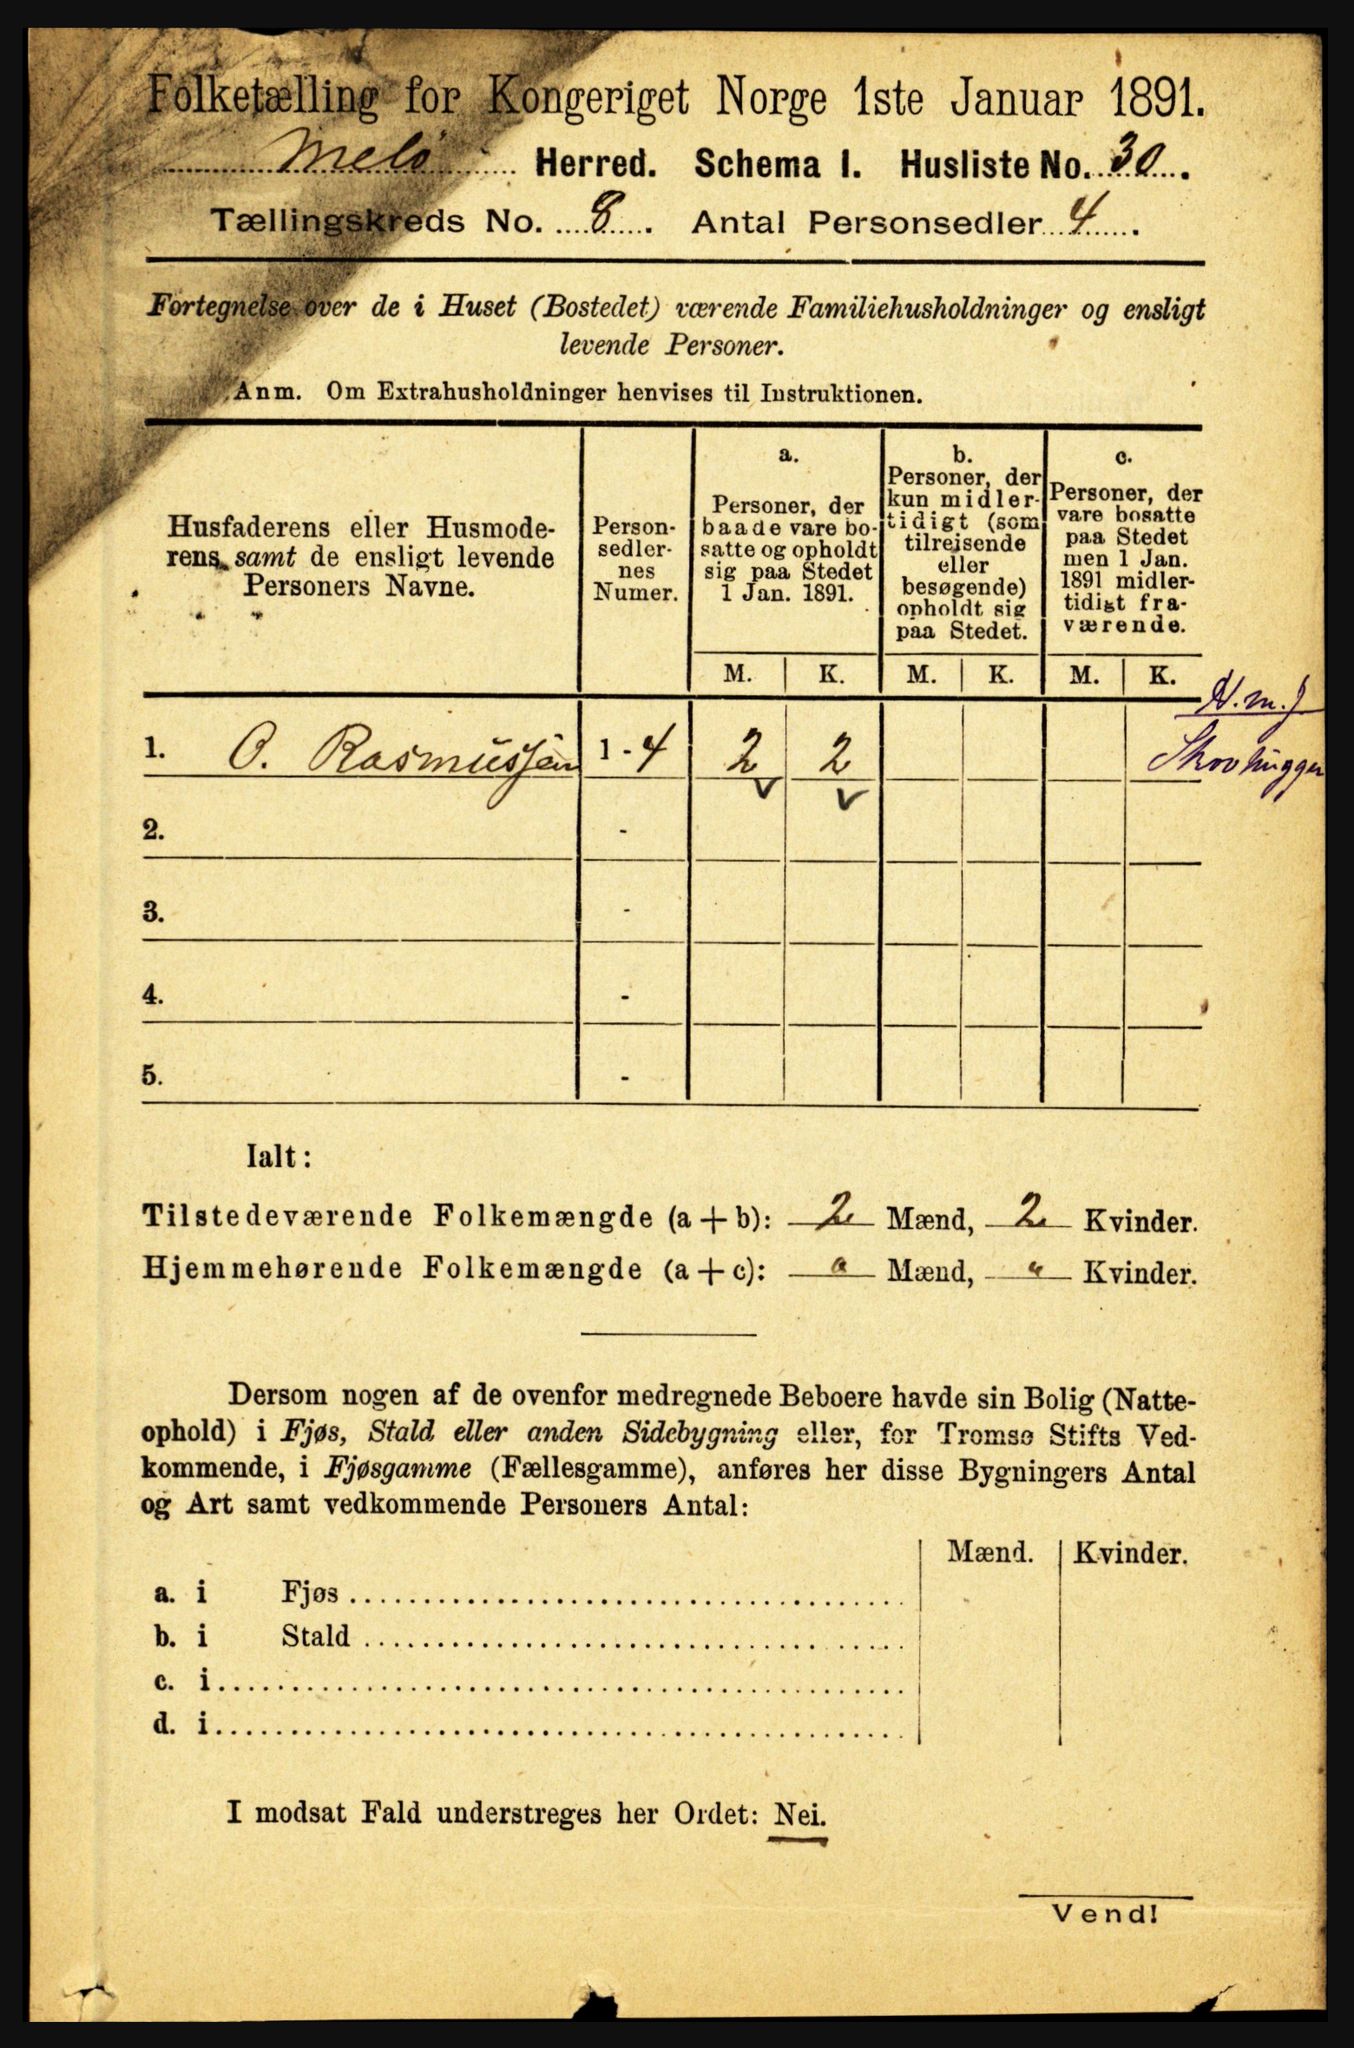 Folketælling for Kongeriget Norge 1ste Januar 1891.
Melö Herred. Schema I. Husliste No. 30.
Tællingskreds No. 8. Antal Personsedler 4.
Fortegnelse over de i Huset (Bostedet) værende Familiehusholdninger og ensligt
levende Personer.
Anm. Om Extrahusholdninger henvises til Instruktionen.
Husfaderens eller Husmode-
rens samt de ensligt levende
Personers Navne.
Person-
sedler-
nes
Numer.
a.
Personer, der
baade vare bo-
satte og opholdt
sig paa Stedet
1 Jan. 1891.
b.
Personer, der
kun midler-
tidigt (som
tilreisende
eller
besøgende)
opholdt sig
paa Stedet.
c.
Personer, der
vare bosatte
paa Stedet
men 1 Jan.
1891 midler-
tidigt fra-
værende.
M. K. M. K. M. K.
H. m. J
1. O. Rasmussen 1 - 4 2 2 Skovhugger
2. -
3. -
4. -
5. -
Ialt:
Tilstedeværende Folkemængde (a + b): 2 Mænd, 2 Kvinder.
Hjemmehørende Folkemængde (a + c): Mænd, Kvinder.
Dersom nogen af de ovenfor medregnede Beboere havde sin Bolig (Natte-
ophold) i Fjøs, Stald eller anden Sidebygning eller, for Tromsø Stifts Ved-
kommende, i Fjøsgamme (Fællesgamme), anføres her disse Bygningers Antal
og Art samt vedkommende Personers Antal:
Mænd. Kvinder.
a. i Fjøs
b. i Stald
c. i
d. i
I modsat Fald understreges her Ordet: Nei.
Vend!